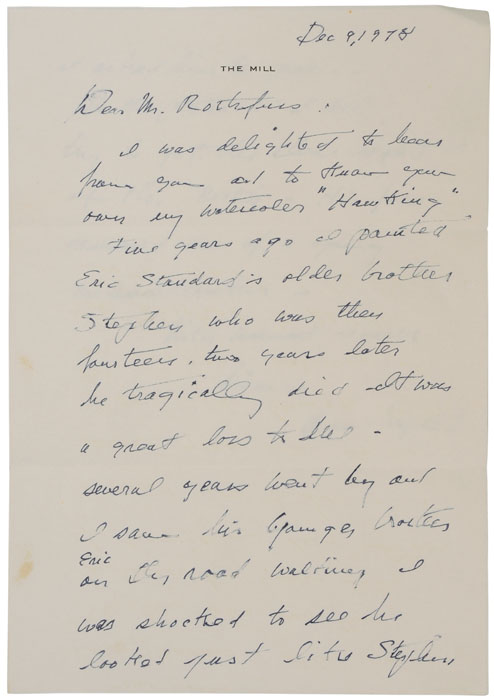 Dec 9, 1978
THE MILL
Dear Mr. Rothfuss :
I was delighted to hear
from you and to know you
own my watercolor "Hawking"
Five years ago I painted
Eric Standard's older brother
Stephen who was then
fourteen. two years later
he tragically died - It was
a great loss to me -
several years went by and
I saw his younger brother
Eric
on the road walking I
was shocked to see he
looked just like Stephen